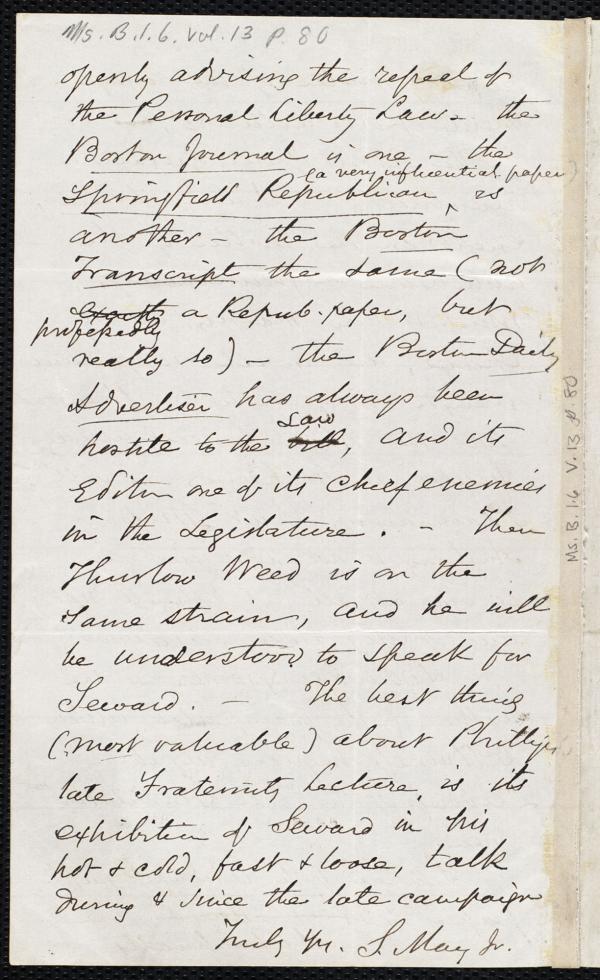 Ms. B.1.6. Vol. 13 p. 80
openly advising the repeal of
the Personal Liberty Law - the
Boston Journal is one - the
(a very influential paper)
Springfield Republican ^ is
another - the Boston
Transcript the same (not
professedly
a Repub. paper, but
really so) - the Boston Daily
Advertiser has always been
Law
hostile to the bill, and its
Editor one of its chief enemies
in the Legislature. - Then
Thurlow Weed is on the
same strain, and he will
be understood to speak for
Seward. - The best thing
(most valuable) about Phillips'
late Fraternity Lecture, is its
exhibition of Seward in his
hot & cold, fast & loose, talk
during & since the late campaign
Truly yrs. S. May Jr.
Ms. B. 1.6 V. 13 p. 80